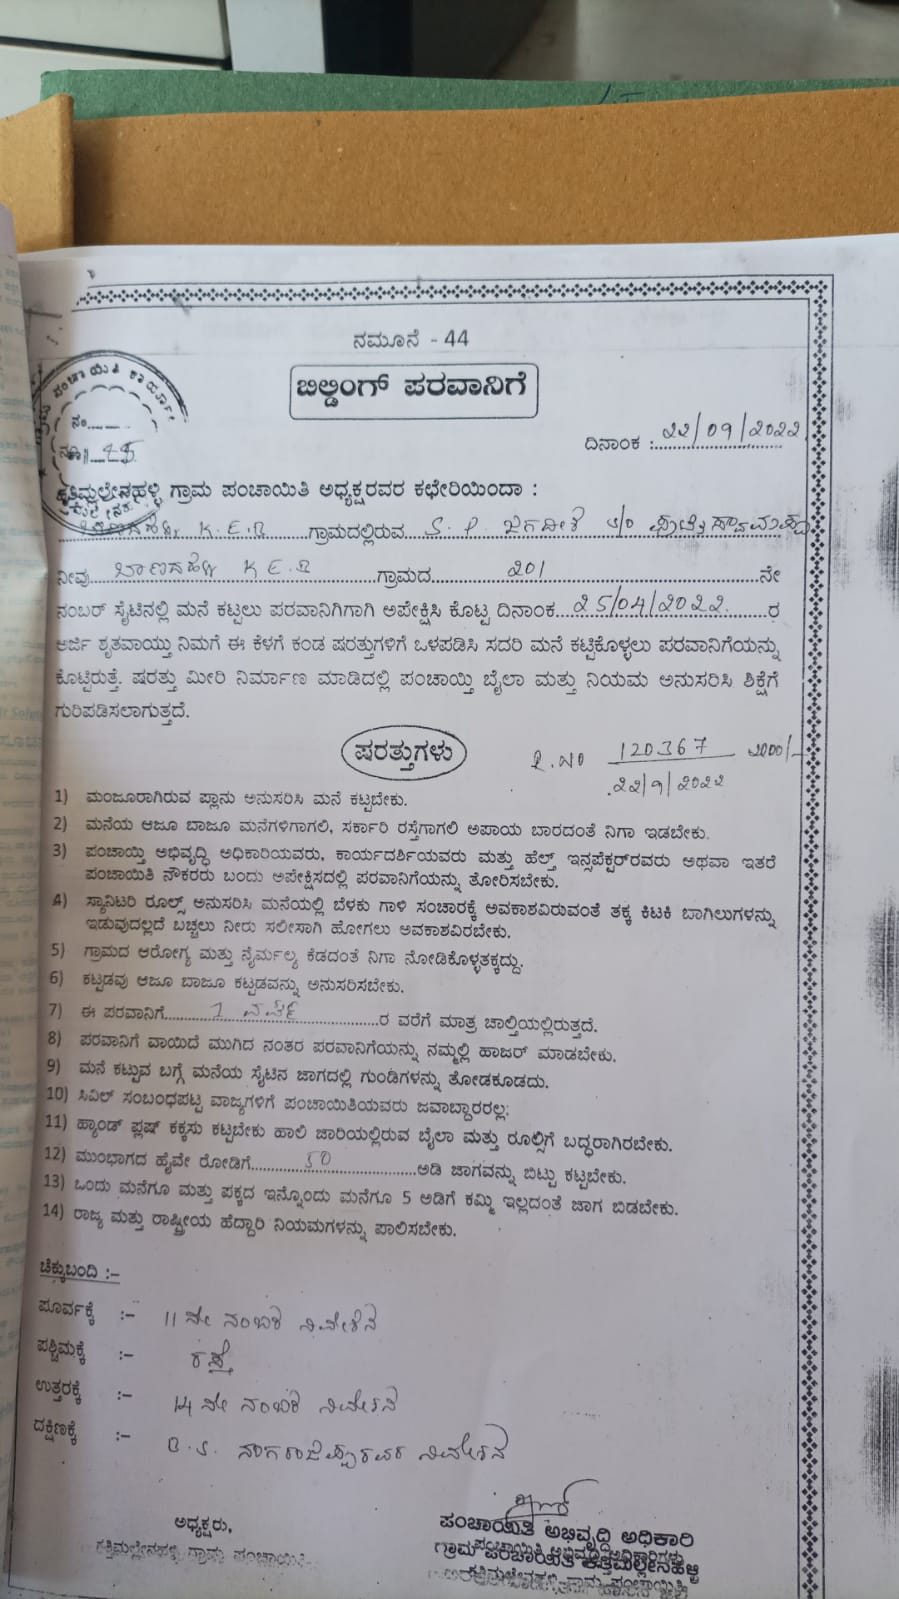 ನಮೂನೆ - 44
ಬಿಲ್ಡಿಂಗ್ ಪರವಾನಿಗೆ
ದಿನಾಂಕ :.. ೨೨/೦೯/೨೦೨೨
ನಂ.
ಗ್ರಾಮ ಪಂಚಾಯಿತಿ ಅಧ್ಯಕ್ಷರವರ ಕಛೇರಿಯಿಂದಾ :
K.E.B ಗ್ರಾಮದಲ್ಲಿರುವ S. P. ಜಗದೀಶ s/o
ನೀವು K E B ಗ್ರಾಮದ 201 ನೇ
ನಂಬರ್ ಸೈಟಿನಲ್ಲಿ ಮನೆ ಕಟ್ಟಲು ಪರವಾನಿಗಿಗಾಗಿ ಅಪೇಕ್ಷಿಸಿ ಕೊಟ್ಟ ದಿನಾಂಕ...25/04/2022. ರ
ಅರ್ಜಿ ಶೃತವಾಯ್ತು ನಿಮಗೆ ಈ ಕೆಳಗೆ ಕಂಡ ಷರತ್ತುಗಳಿಗೆ ಒಳಪಡಿಸಿ ಸದರಿ ಮನೆ ಕಟ್ಟಿಕೊಳ್ಳಲು ಪರವಾನಿಗೆಯನ್ನು
ಕೊಟ್ಟಿರುತ್ತೆ. ಷರತ್ತು ಮೀರಿ ನಿರ್ಮಾಣ ಮಾಡಿದಲ್ಲಿ ಪಂಚಾಯ್ತಿ ಬೈಲಾ ಮತ್ತು ನಿಯಮ ಅನುಸರಿಸಿ ಶಿಕ್ಷೆಗೆ
ಗುರಿಪಡಿಸಲಾಗುತ್ತದೆ.
ಷರತ್ತುಗಳು
R.NO 120367 2000/-
22/9/2022
1) ಮಂಜೂರಾಗಿರುವ ಪ್ಲಾನು ಅನುಸರಿಸಿ ಮನೆ ಕಟ್ಟಬೇಕು.
2) ಮನೆಯ ಆಜೂ ಬಾಜೂ ಮನೆಗಳಿಗಾಗಲಿ, ಸರ್ಕಾರಿ ರಸ್ತೆಗಾಗಲಿ ಅಪಾಯ ಬಾರದಂತೆ ನಿಗಾ ಇಡಬೇಕು.
3) ಪಂಚಾಯ್ತಿ ಅಭಿವೃದ್ಧಿ ಅಧಿಕಾರಿಯವರು, ಕಾರ್ಯದರ್ಶಿಯವರು ಮತ್ತು ಹೆಲ್ತ್ ಇನ್ಸಪೆಕ್ಟರ್‌ರವರು ಅಥವಾ ಇತರೆ
ಪಂಚಾಯಿತಿ ನೌಕರರು ಬಂದು ಅಪೇಕ್ಷಿಸಿದಲ್ಲಿ ಪರವಾನಿಗೆಯನ್ನು ತೋರಿಸಬೇಕು.
4) ಸ್ಯಾನಿಟರಿ ರೂಲ್ಸ್ ಅನುಸರಿಸಿ ಮನೆಯಲ್ಲಿ ಬೆಳಕು ಗಾಳಿ ಸಂಚಾರಕ್ಕೆ ಅವಕಾಶವಿರುವಂತೆ ತಕ್ಕ ಕಿಟಕಿ ಬಾಗಿಲುಗಳನ್ನು
ಇಡುವುದಲ್ಲದೆ ಬಚ್ಚಲು ನೀರು ಸಲೀಸಾಗಿ ಹೋಗಲು ಅವಕಾಶವಿರಬೇಕು.
5) ಗ್ರಾಮದ ಆರೋಗ್ಯ ಮತ್ತು ನೈರ್ಮಲ್ಯ ಕೆಡದಂತೆ ನಿಗಾ ನೋಡಿಕೊಳ್ಳತಕ್ಕದ್ದು.
6) ಕಟ್ಟಡವು ಆಜೂ ಬಾಜೂ ಕಟ್ಟಡವನ್ನು ಅನುಸರಿಸಬೇಕು.
7) ಈ ಪರವಾನಿಗೆ 1 ವರ್ಷ ರ ವರೆಗೆ ಮಾತ್ರ ಚಾಲ್ತಿಯಲ್ಲಿರುತ್ತದೆ.
8) ಪರವಾನಿಗೆ ವಾಯಿದೆ ಮುಗಿದ ನಂತರ ಪರವಾನಿಗೆಯನ್ನು ನಮ್ಮಲ್ಲಿ ಹಾಜರ್ ಮಾಡಬೇಕು.
9) ಮನೆ ಕಟ್ಟುವ ಬಗ್ಗೆ ಮನೆಯ ಸೈಟಿನ ಜಾಗದಲ್ಲಿ ಗುಂಡಿಗಳನ್ನು ತೋಡಕೂಡದು.
10) ಸಿವಿಲ್ ಸಂಬಂಧಪಟ್ಟ ವಾಜ್ಯಗಳಿಗೆ ಪಂಚಾಯಿತಿಯವರು ಜವಾಬ್ದಾರರಲ್ಲ;
11) ಹ್ಯಾಂಡ್ ಫ್ಲಷ್ ಕಕ್ಕಸು ಕಟ್ಟಬೇಕು ಹಾಲಿ ಜಾರಿಯಲ್ಲಿರುವ ಬೈಲಾ ಮತ್ತು ರೂಲ್ಸಿಗೆ ಬದ್ಧರಾಗಿರಬೇಕು.
12) ಮುಂಭಾಗದ ಹೈವೇ ರೋಡಿಗೆ 50 ಅಡಿ ಜಾಗವನ್ನು ಬಿಟ್ಟು ಕಟ್ಟಬೇಕು.
13) ಒಂದು ಮನೆಗೂ ಮತ್ತು ಪಕ್ಕದ ಇನ್ನೊಂದು ಮನೆಗೂ 5 ಅಡಿಗೆ ಕಮ್ಮಿ ಇಲ್ಲದಂತೆ ಜಾಗ ಬಿಡಬೇಕು.
14) ರಾಜ್ಯ ಮತ್ತು ರಾಷ್ಟ್ರೀಯ ಹೆದ್ದಾರಿ ನಿಯಮಗಳನ್ನು ಪಾಲಿಸಬೇಕು.
ಚೆಕ್ಕುಬಂದಿ :–
ಪೂರ್ವಕ್ಕೆ :– 11 ನೇ ನಂಬರ ನಿವೇಶನ
ಪಶ್ಚಿಮಕ್ಕೆ :– ರಸ್ತೆ
ಉತ್ತರಕ್ಕೆ :– 14 ನೇ ನಂಬರ ನಿವೇಶನ
ದಕ್ಷಿಣಕ್ಕೆ :– B. S. ನಾಗರಾಜಪ್ಪರವರ ನಿವೇಶನ
ಅಧ್ಯಕ್ಷರು,
ಪಂಚಾಯಿತಿ ಅಭಿವೃದ್ಧಿ ಅಧಿಕಾರಿ
ಕತ್ತಿಮಲ್ಲೇನಹಳ್ಳಿ ಗ್ರಾಮ ಪಂಚಾಯಿತಿ